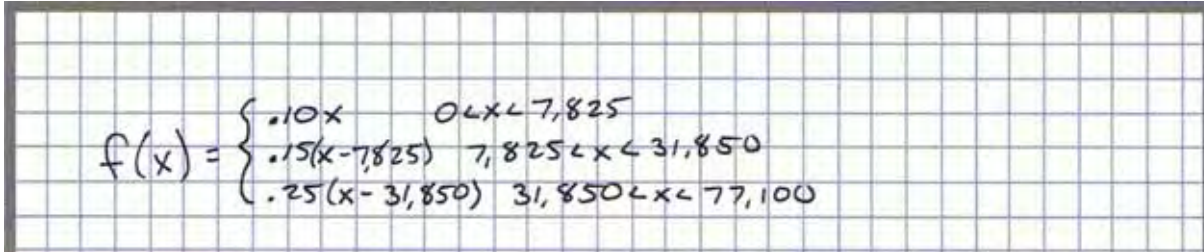 f(x) = { .10x 0<x<7,825
.15(x-7,825) 7,825<x<31,850
.25(x-31,850) 31,850<x<77,100